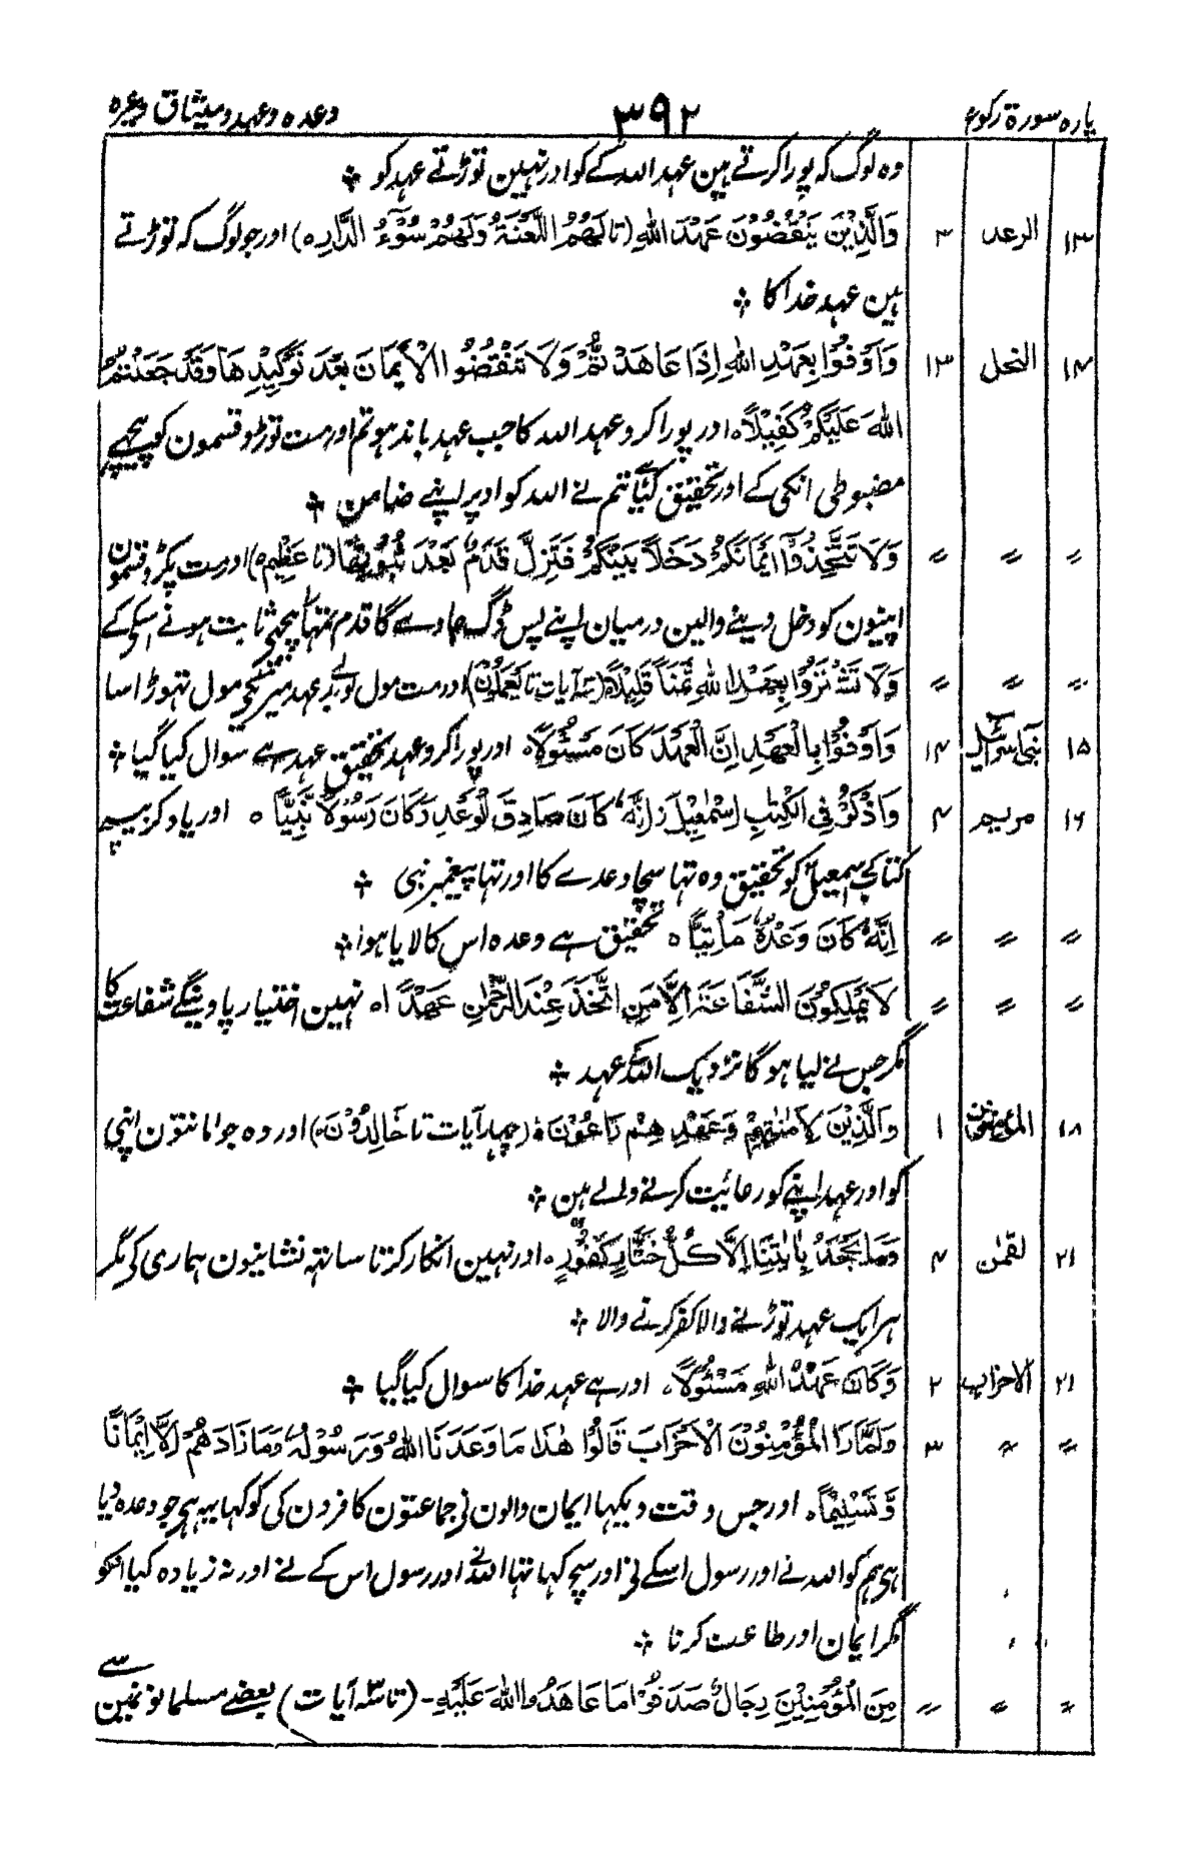 پارہ سورۃ رکوع ۳۹۲ وعدہ وعہد ومیثاق وغیرہ
وہ لوگ کہ پورا کرتے ہین عہد اللہ کے کو اور نہین توڑتے عہد کو
۱۳ الرعد ۳ وَالَّذِيْنَ يَنْقُضُوْنَ عَهْدَ اللهِ (تا لَهُمُ اللَّعْنَةُ وَلَهُمْ سُوْٓءُ الدَّارِه) اور جو لوگ کہ توڑتے
ہین عہد خدا کا
۱۴ النحل ۱۳ وَاَوْفُوْا بِعَهْدِ اللهِ اِذَا عَاهَدْتُّمْ وَلَا تَنْقُضُوا الْاَيْمَانَ بَعْدَ تَوْكِيْدِهَا وَقَدْ جَعَلْتُمُ
اللهَ عَلَيْكُمْ كَفِيْلًاه اور پورا کرو عہد اللہ کا جب عہد باندہو تم اور مت توڑو قسمون کو پیچھے
مضبوطی انکی کے اور تحقیق کیا تم نے اللہ کو اوپر اپنے ضامن
〃 〃 〃 وَلَا تَتَّخِذُوْٓا اَيْمَانَكُمْ دَخَلًا بَيْنَكُمْ فَتَزِلَّ قَدَمٌ بَعْدَ ثُبُوْتِهَا (تا عَظِيْمٌ ه) اور مت پکڑو قسمون
اپنیون کو دخل دینے والین درمیان اپنے پس ڈگ جاوے گا قدم تمہارا پیچھے ثابت ہونے اسکی کے
〃 〃 〃 وَلَا تَشْتَرُوْا بِعَهْدِ اللهِ ثَمَنًا قَلِيْلًا (آیات تا يَعْمَلُوْنَ) اور مت مول لو بدلے عہد میرے کے مول تہوڑا سا
۱۵ بنی اسرائیل ۴ وَاَوْفُوْا بِالْعَهْدِ اِنَّ الْعَهْدَ كَانَ مَسْئُوْلًاه اور پورا کرو عہد تحقیق عہد ہے سوال کیا گیا
۱۶ مریم ۴ وَاذْكُرْ فِي الْكِتٰبِ اِسْمٰعِيْلَ ز اِنَّهٗ كَانَ صَادِقَ الْوَعْدِ وَكَانَ رَسُوْلًا نَّبِيًّا ه اور یاد کر بیچ
کتاب کے اسمٰعیل کو تحقیق وہ تہا سچا وعدے کا اور تہا پیغمبر نبی
〃 〃 〃 اِنَّهٗ كَانَ وَعْدُهٗ مَاْتِيًّا ه تحقیق ہے وعدہ اس کا لایا ہوا
〃 〃 〃 لَا يَمْلِكُوْنَ الشَّفَاعَةَ اِلَّا مَنِ اتَّخَذَ عِنْدَ الرَّحْمٰنِ عَهْدًا ه نہین اختیار پاوینگے شفاعت کا
مگر جس نے لیا ہوگا نزدیک اللہ کے عہد
۱۸ المؤمنون ۱ وَالَّذِيْنَ هُمْ لِاَمٰنٰتِهِمْ وَعَهْدِهِمْ رَاعُوْنَ ه (چہار آیات تا خَالِدُوْنَ ه) اور وہ جو امانتون اپنی
کو اور عہد اپنے کو رعائیت کرنے والے ہین
۲۱ لقمٰن ۴ وَمَا يَجْحَدُ بِاٰيٰتِنَا اِلَّا كُلُّ خَتَّارٍ كَفُوْرٍ ه اور نہین انکار کرتا ساتہہ نشانیون ہماری کی مگر
ہر ایک عہد توڑنے والا کفر کرنے والا
۲۱ الاحزاب ۲ وَكَانَ عَهْدُ اللهِ مَسْئُوْلًا ه اور ہے عہد خدا کا سوال کیا گیا
〃 〃 ۳ وَلَمَّا رَاَ الْمُؤْمِنُوْنَ الْاَحْزَابَ قَالُوْا هٰذَا مَا وَعَدَنَا اللهُ وَرَسُوْلُهٗ وَمَا زَادَهُمْ اِلَّا اِيْمَانًا
وَّتَسْلِيْمًا ه اور جس وقت دیکہا ایمان والون نے جماعتون کافرون کی کو کہا یہہ ہی جو وعدہ دیا
ہی ہم کو اللہ نے اور رسول اسکے نے اور سچ کہا تہا اللہ نے اور رسول اس کے نے اور نہ زیادہ کیا انکو
مگر ایمان اور طاعت کرنا
〃 〃 〃 مِنَ الْمُؤْمِنِيْنَ رِجَالٌ صَدَقُوْا مَا عَاهَدُوا اللهَ عَلَيْهِ - (تا آیات) بعضے مسلمانونمین سے